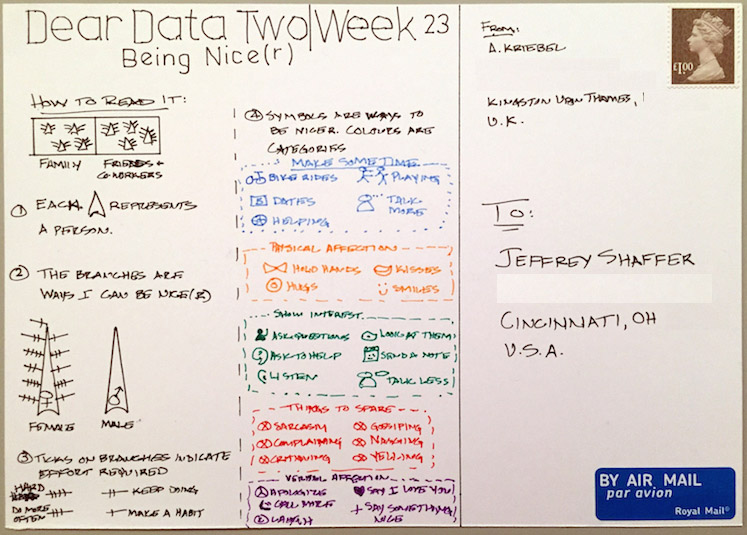 Dear Data Two|Week 23
Being Nice(r)
HOW TO READ IT:
FAMILY
FRIENDS + COWORKERS
① EACH REPRESENTS
A PERSON.
② THE BRANCHES ARE
WAYS I CAN BE NICE(R)
FEMALE
MALE
③ TICKS ON BRANCHES INDICATE
EFFORT REQUIRED
HARD
KEEP DOING
DO MORE OFTEN
MAKE A HABIT
④ SYMBOLS ARE WAYS TO
BE NICER. COLOURS ARE
CATEGORIES
MAKE SOME TIME
BIKE RIDES
PLAYING
DATES
TALK MORE
HELPING
PHYSICAL AFFECTION
HOLD HANDS
KISSES
HUGS
SMILES
SHOW INTEREST
ASK QUESTIONS
LOOK AT THEM
ASK TO HELP
SEND A NOTE
LISTEN
TALK LESS
THINGS TO SPARE
SARCASM
GOSSIPING
COMPLAINING
NAGGING
CRITICISING
YELLING
VERBAL AFFECTION
APOLOGIZE
SAY I LOVE YOU
CALL MORE
SAY SOMETHING NICE
LAUGH
FROM:
A. KRIEBEL
KINGSTON UPON THAMES,
U.K.
£1.00
TO:
JEFFREY SHAFFER
CINCINNATI, OH
U.S.A.
BY AIR MAIL
par avion
Royal Mail®